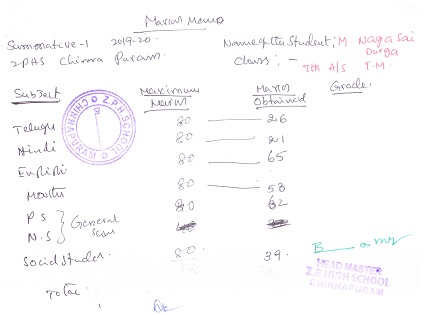 Marks Memo
Summative-1 2019-20. Name of the Student; M Naga Sai Durga
ZPHS Chinna Puram. Class: - 7th A/S T.M.
Subject Maximum Marks Marks Obtained Grade.
Telugu 80 26
Hindi 80 21
English 80 65
Maths 80 53
P S 80 62
N.S } General
Social Studies. 80. 39.
Total
Z.P.H. SCHOOL CHINNAPURAM
HEAD MASTER
Z.P HIGH SCHOOL
CHINNAPURAM